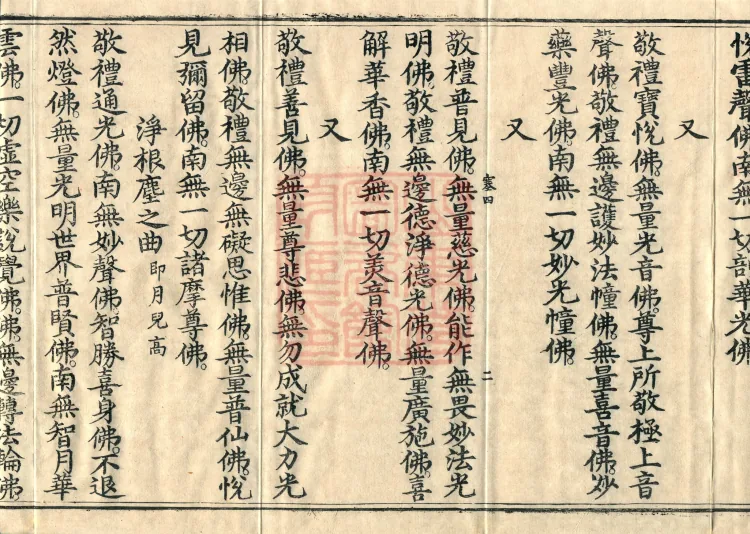 悅雷聲佛南無一切部華光佛
又
敬禮寶悅佛無量光音佛尊上所敬極上音
聲佛敬禮無邊護妙法幢佛無量喜音佛妙
藥豐光佛南無一切妙光幢佛
又
塞四 二
敬禮普見佛無量慈光佛能作無畏妙法光
明佛敬禮無邊德淨德光佛無量廣施佛喜
解華香佛南無一切美音聲佛
又
敬禮善見佛無量尊悲佛無勿成就大力光
相佛敬禮無邊無礙思惟佛無量普仙佛悅
見彌留佛南無一切諸摩尊佛
淨根塵之曲 即月兒高
敬禮通光佛南無妙聲佛智勝喜身佛不退
然燈佛無量光明世界普賢佛南無智月華
雲佛一切虛空樂說覺佛佛無邊轉法輪佛